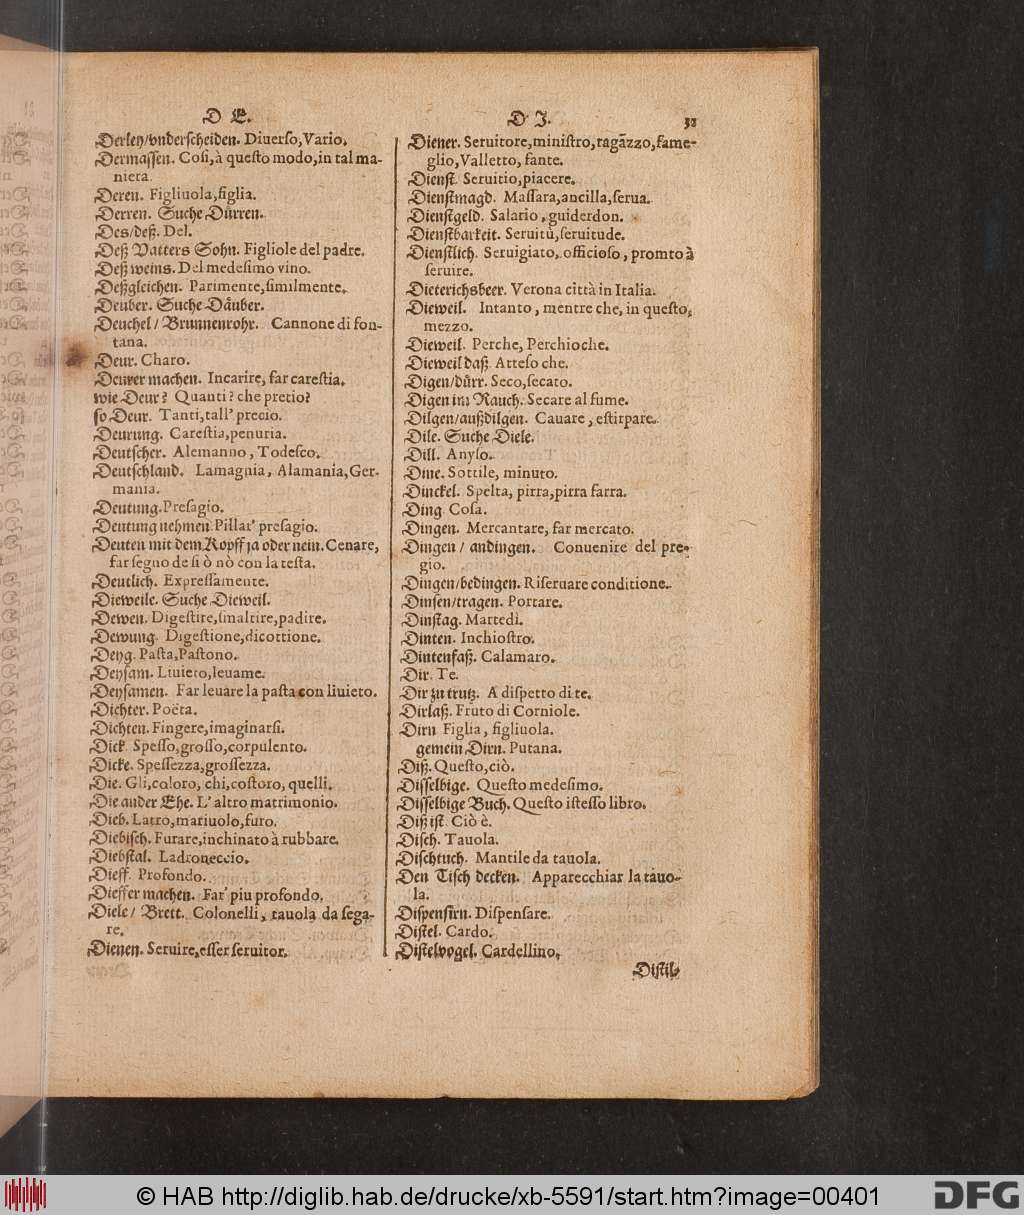 D E.
Derley/vnderscheiden. Diuerſo, Vario.
Dermaſſen. Coſi, à queſto modo, in tal ma-
niera.
Deren. Figliuola, figlia.
Derren. Suche Dürren.
Des/deß. Del.
Deß Vatters Sohn. Figliole del padre.
Deß weins. Del medeſimo vino.
Deßgleichen. Parimente, ſimilmente.
Deuber. Suche Däuber.
Deuchel / Brunnenrohr. Cannone di fon-
tana.
Deur. Charo.
Deurer machen. Incarire, far careſtia.
wie Deur? Quanti? che pretio?
ſo Deur. Tanti, tall' precio.
Deurung. Careſtia, penuria.
Deutſcher. Alemanno, Todeſco.
Deutſchland. Lamagnia, Alamania, Ger-
mania.
Deutung. Preſagio.
Deutung nehmen. Pillar' preſagio.
Deuten mit dem Kopff ja oder nein. Cenare,
far ſegno de ſi ò nò con la teſta.
Deutlich. Expreſſamente.
Dieweile. Suche Dieweil.
Dewen. Digeſtire, ſmaltire, padire.
Dewung. Digeſtione, dicottione.
Deyg. Paſta, Paſtono.
Deyſam. Liuieto, leuame.
Deyſamen. Far leuare la paſta con liuieto.
Dichter. Poëta.
Dichten. Fingere, imaginarſi.
Dick. Speſſo, groſſo, corpulento.
Dicke. Speſſezza, groſſezza.
Die. Gli, coloro, chi, coſtoro, quelli.
Die ander Ehe. L' altro matrimonio.
Dieb. Latro, mariuolo, furo.
Diebiſch. Furare, inchinato à rubbare.
Diebſtal. Ladroneccio.
Dieff. Profondo.
Dieffer machen. Far' piu profondo.
Diele / Brett. Colonelli, tauola da ſega-
re.
Dienen. Seruire, eſſer ſeruitor.
D J.
Diener. Seruitore, miniſtro, ragãzzo, fame-
glio, Valletto, fante.
Dienſt. Seruitio, piacere.
Dienſtmagd. Maſſara, ancilla, ſerua.
Dienſtgeld. Salario, guiderdon.
Dienſtbarkeit. Seruitù, ſeruitude.
Dienſtlich. Seruigiato, officioſo, promto à
ſeruire.
Dieterichsbeer. Verona città in Italia.
Dieweil. Intanto, mentre che, in queſto,
mezzo.
Dieweil. Perche, Perchioche.
Dieweil daß. Atteſo che.
Digen/dürr. Seco, ſecato.
Digen im Rauch. Secare al fume.
Dilgen/außdilgen. Cauare, eſtirpare.
Dile. Suche Diele.
Dill. Anyſo.
Dine. Sottile, minuto.
Dinckel. Spelta, pirra, pirra farra.
Ding. Coſa.
Dingen. Mercantare, far mercato.
Dingen / andingen. Conuenire del pre-
gio.
Dingen/bedingen. Riſeruare conditione.
Dinſen/tragen. Portare.
Dinſtag. Martedi.
Dinten. Inchioſtro.
Dintenfaß. Calamaro.
Dir. Te.
Dir zu trutz. A diſpetto di te.
Dirlaß. Fruto di Corniole.
Dirn Figlia, figliuola.
gemein Dirn. Putana.
Diß. Queſto, ciò.
Diſſelbige. Queſto medeſimo.
Diſſelbige Buch. Queſto iſteſſo libro.
Diß iſt. Ciò è.
Diſch. Tauola.
Diſchtuch. Mantile da tauola.
Den Tiſch decken. Apparecchiar la tauo-
la.
Diſpenſirn. Diſpenſare.
Diſtel. Cardo.
Diſtelvogel. Cardellino.
Diſtil-
© HAB http://diglib.hab.de/drucke/xb-5591/start.htm?image=00401
DFG